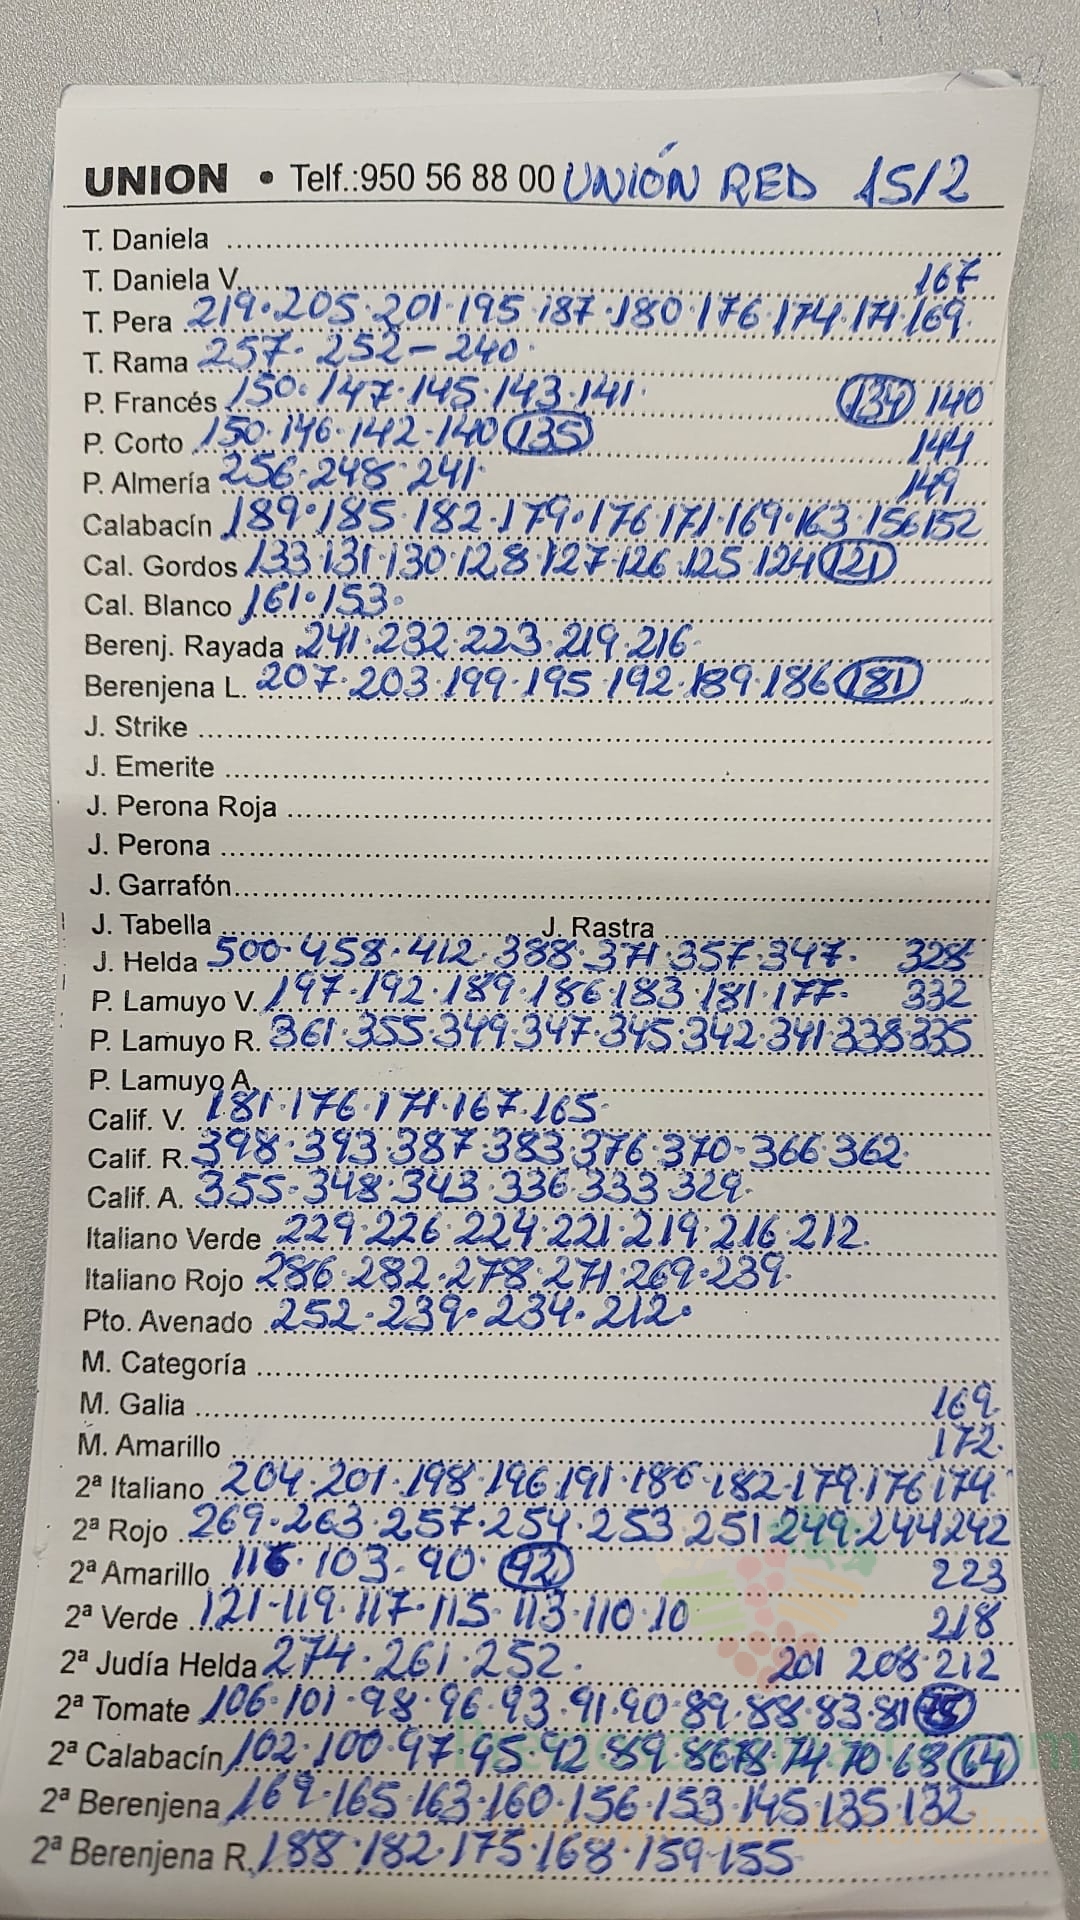 UNION • Telf.:950 56 88 00 UNIÓN RED 15/2
T. Daniela
T. Daniela V. 167
T. Pera 219·205·201·195·187·180·176·174·171·169
T. Rama 257·252-240·
P. Francés 150·147·145·143·141· 134 140
P. Corto 150·146·142·140 135 144
P. Almería 256·248·241· 149
Calabacín 189·185·182·179·176·171·169·163·156 152
Cal. Gordos 133·131·130·128·127·126·125·124 121
Cal. Blanco 161·153·
Berenj. Rayada 241·232·223·219·216·
Berenjena L. 207·203·199·195·192·189·186 181
J. Strike
J. Emerite
J. Perona Roja
J. Perona
J. Garrafón
J. Tabella J. Rastra
J. Helda 500·458·412·388·371·357·347· 328
P. Lamuyo V. 197·192·189·186·183·181·177· 332
P. Lamuyo R. 361·355·349·347·345·342·341·338 335
P. Lamuyo A.
Calif. V. 181·176·171·167·165·
Calif. R. 398·393·387·383·376·370·366·362·
Calif. A. 355·348·343·336·333·329·
Italiano Verde 229·226·224·221·219·216·212·
Italiano Rojo 286·282·278·271·269·239·
Pto. Avenado 252·239·234·212·
M. Categoría
M. Galia 169
M. Amarillo 172·
2ª Italiano 204·201·198·196·191·186·182·179·176·174
2ª Rojo 269·263·257·254·253 251 249·244 242
2ª Amarillo 116·103·90· 92 223
2ª Verde 121·119·117·115·113·110·10 218
2ª Judía Helda 274·261·252· 201 208·212
2ª Tomate 106·101·98·96·93·91·90·89·88·83·81 75
2ª Calabacín 102·100·97·95·92·89·86 78·74·70·68 64
2ª Berenjena 169·165·163·160·156·153·145·135·132
2ª Berenjena R. 188·182·175·168·159·155